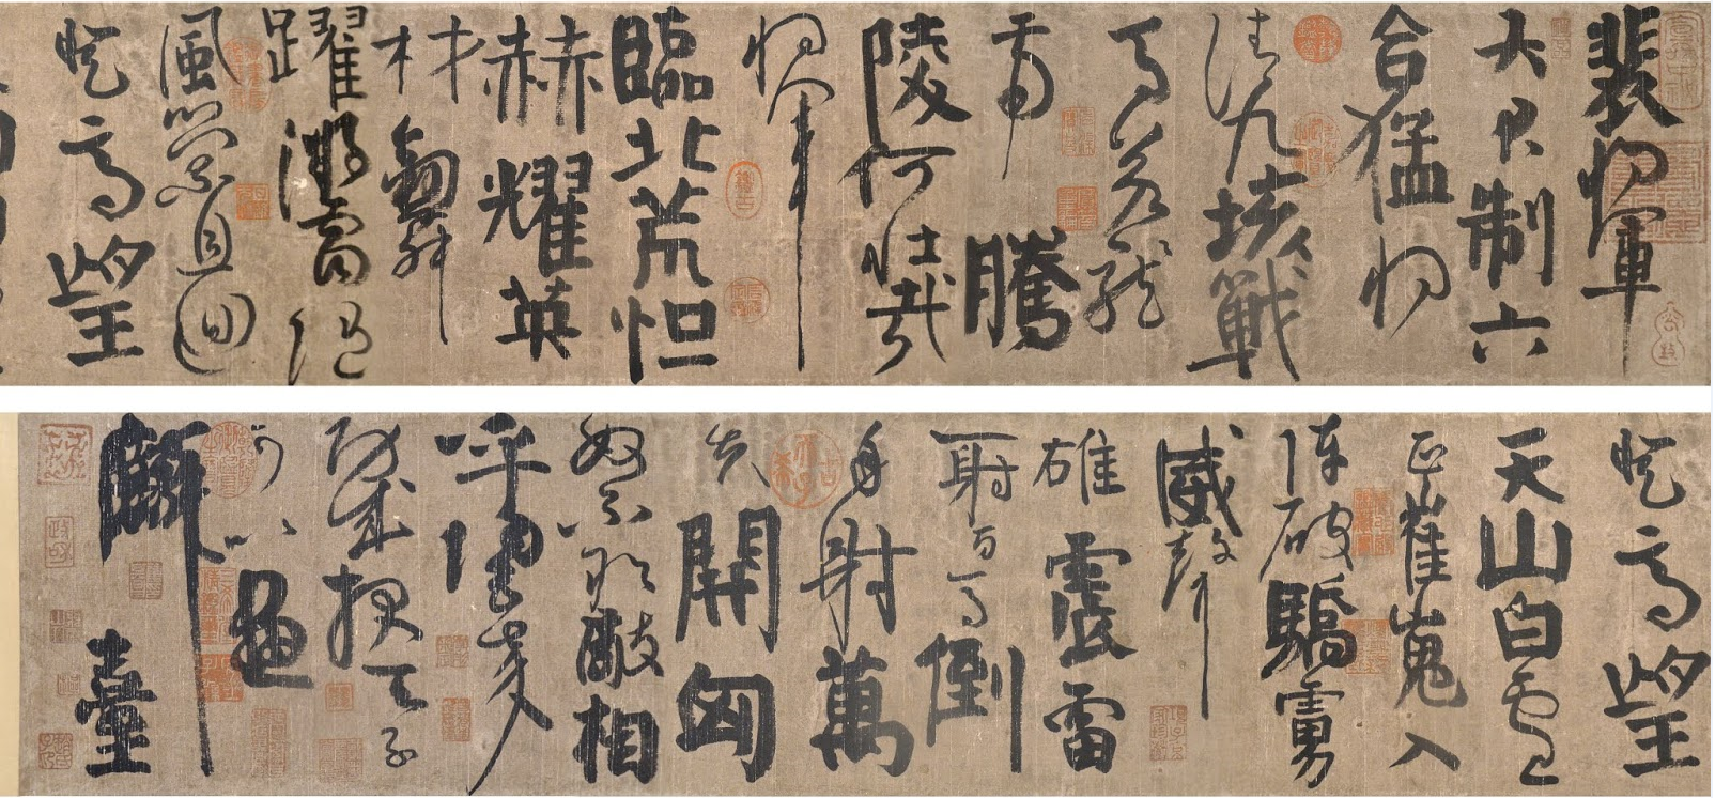 裴將軍
大君制六
合猛將
清九垓戰
馬若龍
虎騰
陵何壯哉
將軍
臨北荒怛
赫耀英
材劍舞
躍游雷隨
風縈且迴
登高望
登高望
天山白雪
正崔嵬入
陣破驕虜
威聲
雄震雷
一射百馬倒
再射萬
夫開匈
奴不敢敵相
呼歸去來
功成報天子
可以畫
麟臺